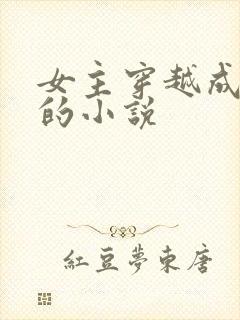 女主穿越成
的小説
紅豆夢東唐